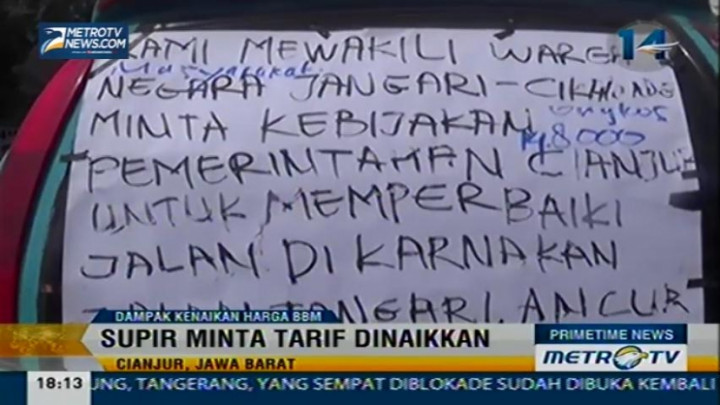 METROTV
NEWS.COM
14
KAMI MEWAKILI WARGA
Masyarakat
NEGARA JANGARI-
ongkos
MINTA KEBIJAKAN Rp.8000
PEMERINTAHAN CIANJUR
UNTUK MEMPERBAIKI
JALAN DI KARNAKAN
JANGARI. ANCUR
DAMPAK KENAIKAN HARGA BBM
SUPIR MINTA TARIF DINAIKKAN
CIANJUR, JAWA BARAT
PRIMETIME NEWS
METROTV
18:13 UNG, TANGERANG, YANG SEMPAT DIBLOKADE SUDAH DIBUKA KEMBALI